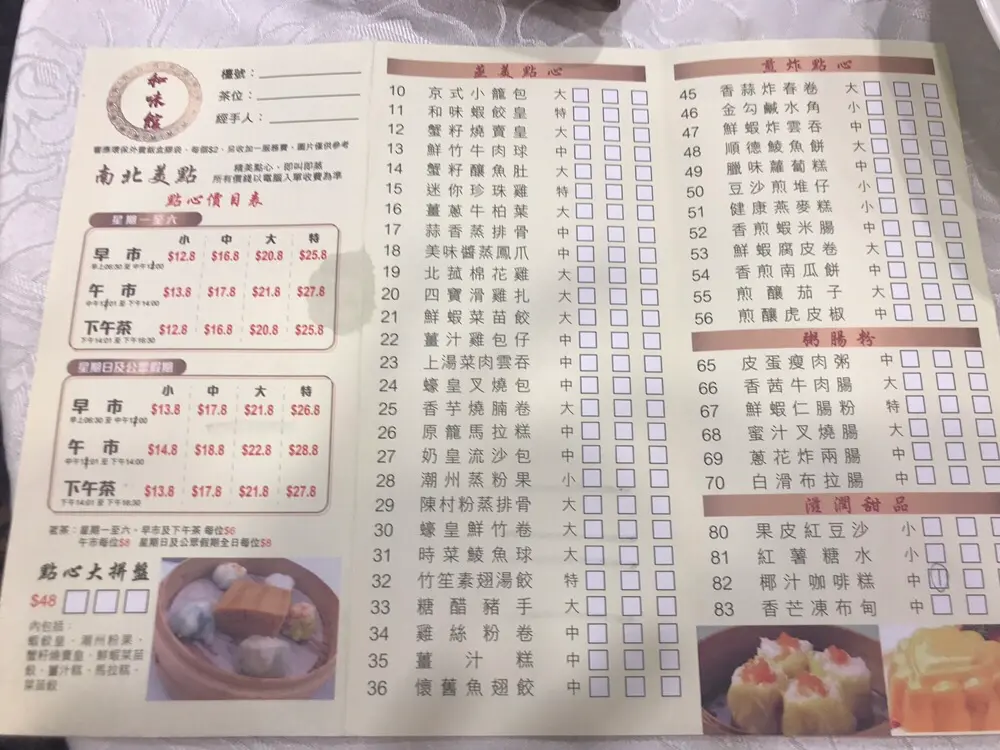 和味館
檯號：
茶位：
經手人：
響應環保外賣飯盒膠袋、每個$2、另收加一服務費、圖片僅供參考
南北美點
精美點心、即叫即蒸
所有價錢以電腦入單收費為準
點心價目表
星期一至六
小 中 大 特
早市 $12.8 $16.8 $20.8 $25.8
午市 $13.8 $17.8 $21.8 $27.8
下午茶 $12.8 $16.8 $20.8 $25.8
下午14:01 至 下午16:30
星期日及公眾假期
小 中 大 特
早市 $13.8 $17.8 $21.8 $26.8
午市 $14.8 $18.8 $22.8 $28.8
下午茶 $13.8 $17.8 $21.8 $27.8
下午14:01 至 下午16:30
茗茶：星期一至六、早市及下午茶 每位$6
午市每位$8 星期日及公眾假期全日每位$8
點心大拼盤
$48
內包括：
蝦餃皇、潮州粉果、
蟹籽燒賣皇、鮮蝦菜苗
餃、薑汁糕、馬拉糕、
菜苗餃
蒸美點心
10 京式小籠包 大
11 和味蝦餃皇 特
12 蟹籽燒賣皇 大
13 鮮竹牛肉球 中
14 蟹籽釀魚肚 大
15 迷你珍珠雞 特
16 薑蔥牛柏葉 大
17 蒜香蒸排骨 中
18 美味醬蒸鳳爪 中
19 北菰棉花雞 大
20 四寶滑雞扎 大
21 鮮蝦菜苗餃 大
22 薑汁雞包仔 中
23 上湯菜肉雲吞 中
24 蠔皇叉燒包 中
25 香芋燒腩卷 大
26 原籠馬拉糕 中
27 奶皇流沙包 中
28 潮州蒸粉果 小
29 陳村粉蒸排骨 大
30 蠔皇鮮竹卷 大
31 時菜鯪魚球 大
32 竹笙素翅湯餃 特
33 糖醋豬手 大
34 雞絲粉卷 中
35 薑汁糕 中
36 懷舊魚翅餃 中
煎炸點心
45 香蒜炸春卷 大
46 金勾鹹水角 小
47 鮮蝦炸雲吞 中
48 順德鯪魚餅 大
49 臘味蘿蔔糕 中
50 豆沙煎堆仔 小
51 健康燕麥糕 小
52 香煎蝦米腸 中
53 鮮蝦腐皮卷 大
54 香煎南瓜餅 中
55 煎釀茄子 大
56 煎釀虎皮椒 中
粥腸粉
65 皮蛋瘦肉粥 中
66 香茜牛肉腸 大
67 鮮蝦仁腸粉 特
68 蜜汁叉燒腸 大
69 蔥花炸兩腸 中
70 白滑布拉腸 中
滋潤甜品
80 果皮紅豆沙 小
81 紅薯糖水 小
82 椰汁咖啡糕 中
83 香芒凍布甸 中